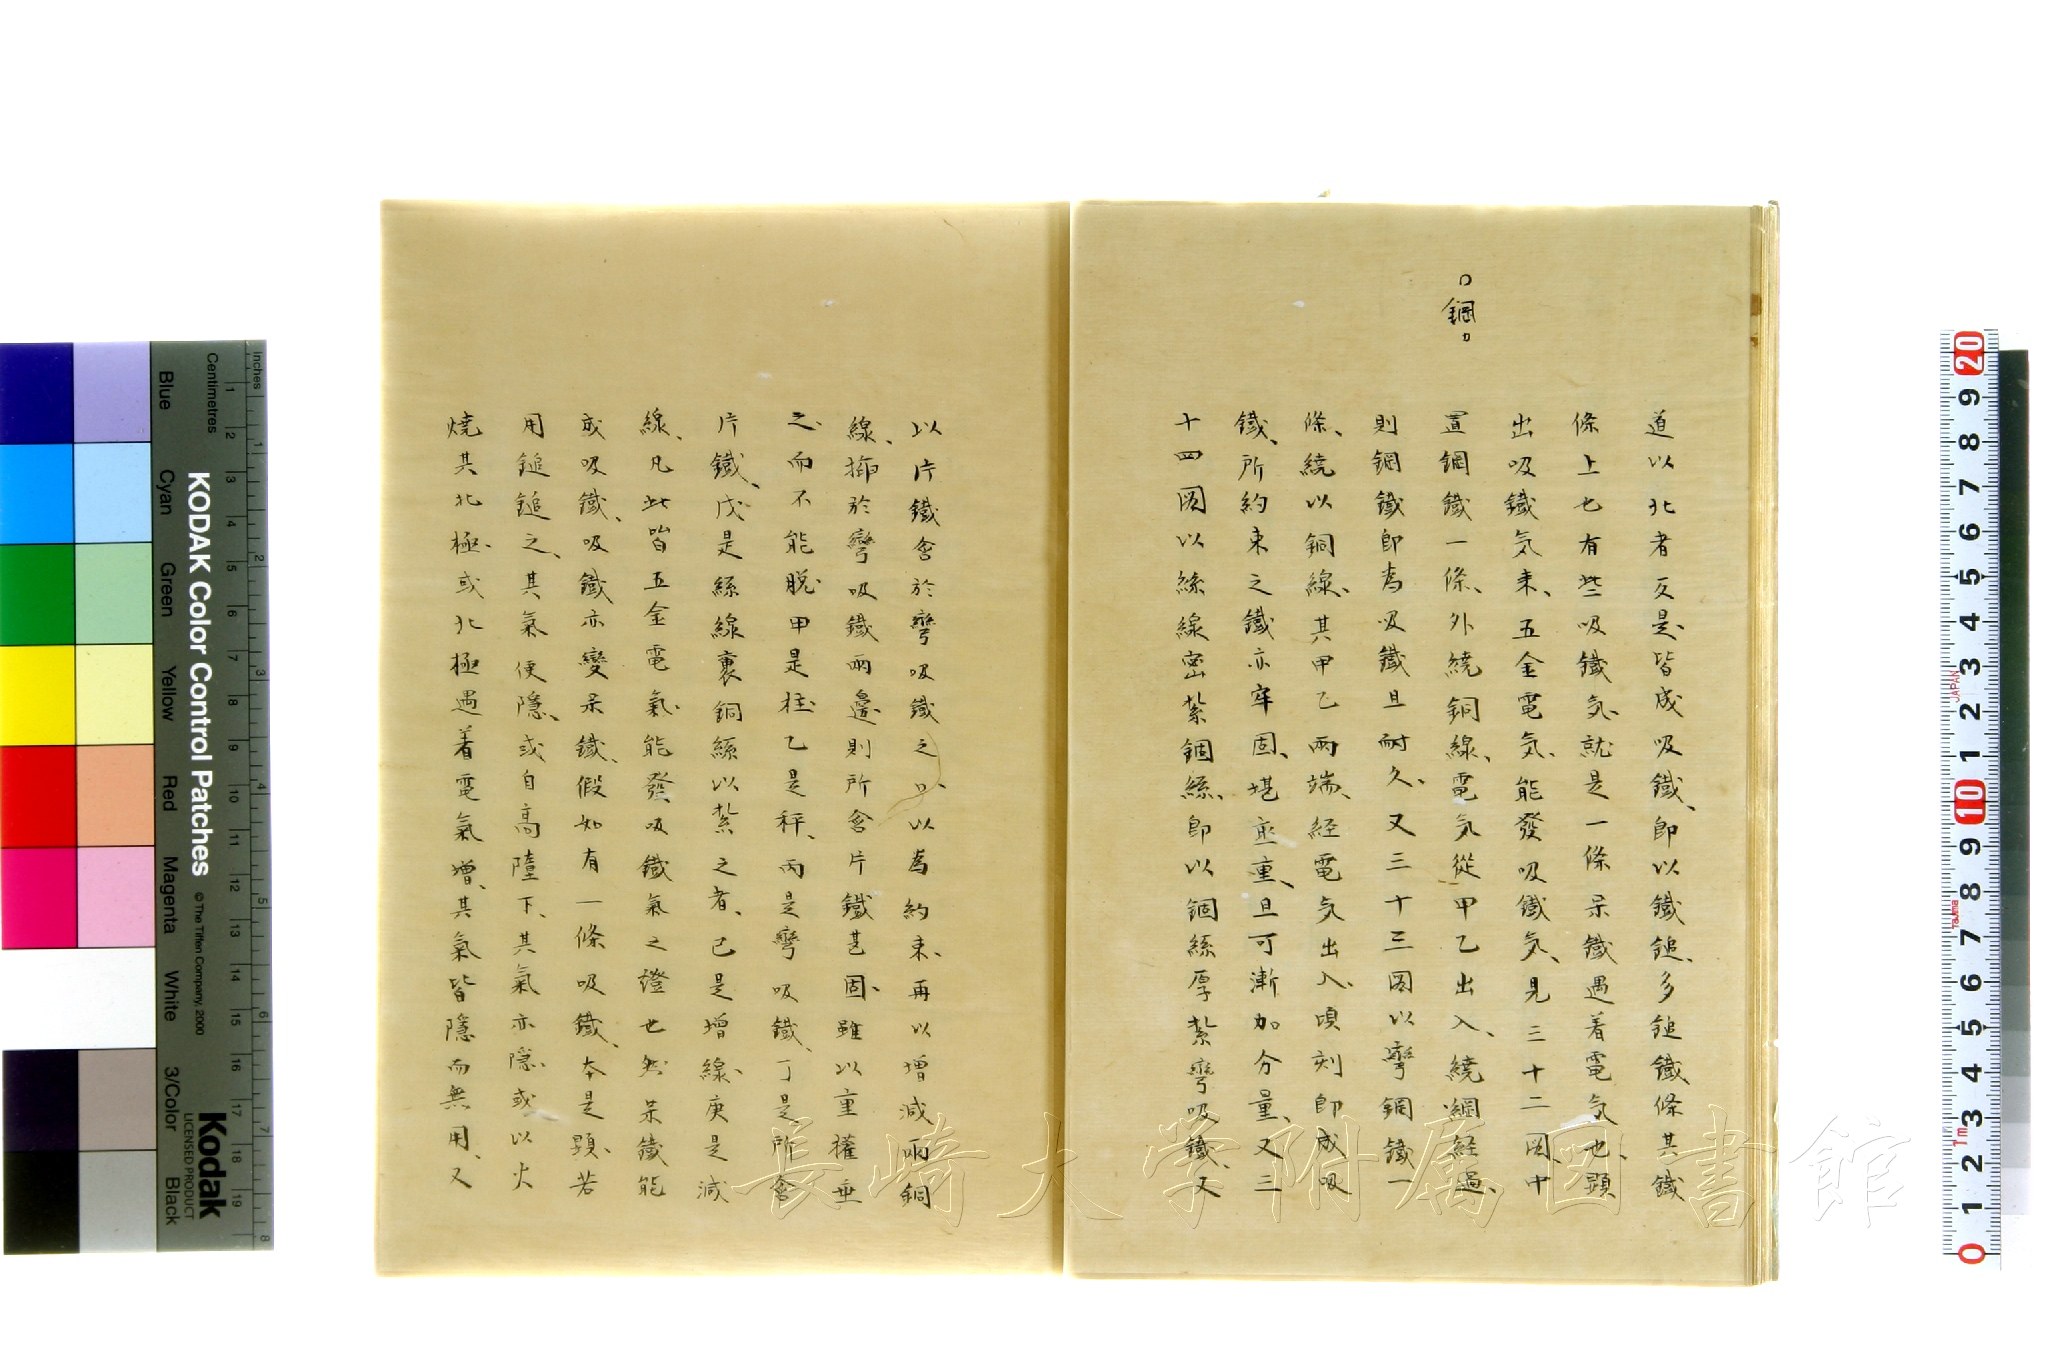 道以北者反是、皆成吸鐵、即以鐵鎚、多鎚鐵條其鐵
條上也有些吸鐵気、就是一條呆鐵遇着電気也、顕
出吸鐵気来、五金電気、能發吸鐵気、見三十二図、中
置鋼鐵一條、外繞銅線、電気從甲乙出入、繞綱経過、
則鋼鐵即為吸鐵且耐久、又三十三図以彎鋼鐵一
條、繞以銅線、其甲乙兩端、経電気出入、頃刻即成吸
鐵、所約束之鐵亦牢固、堪重、且可漸加分量、又三
十四図以絲線密紮銅絲、即以銅絲厚紮彎吸鐵、又
○鋼カ
以片鐵含於彎吸鐵之口、以為約束、再以增減兩銅
線、揷於彎吸鐵兩邊、則所含片鐵甚固、雖以重權垂
之、而不能脫、甲是柱、乙是秤、丙是彎吸鐵、丁是所含
片鐵、戊是絲線裹銅絲以紮之者、己是增線、庚是減
線、凡此皆五金電氣、能發吸鐵氣之證也然呆鐵能
或吸鐵、吸鐵亦變呆鐵、假如有一條吸鐵、本是顕、若
用鎚鎚之、其氣便隱、或自高墮下、其氣亦隱、或以火
燒其北極、或北極遇着電氣增、其氣皆隱而無用、又
KODAK Color Control Patches
© The Tiffen Company, 2000
Kodak
LICENSED PRODUCT
Inches
Centimetres
Blue
Cyan
Green
Yellow
Red
Magenta
White
3/Color
Black
JAPAN
長崎大学附属図書館